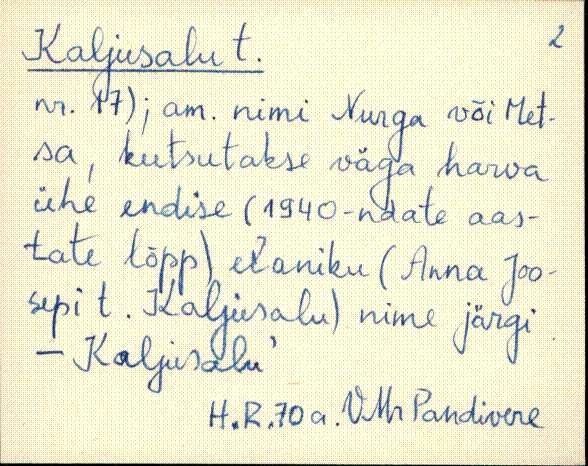 Kaljusalu t. 2
nr. 17); am. nimi Nurga või Met-
sa, kutsutakse väga harva
ühe endise (1940-ndate aas-
tate lõpp) elaniku (Anna Joo-
sepi t. Kaljusalu) nime järgi
– Kaljusalu'
H.R. 70 a. VMr Pandivere